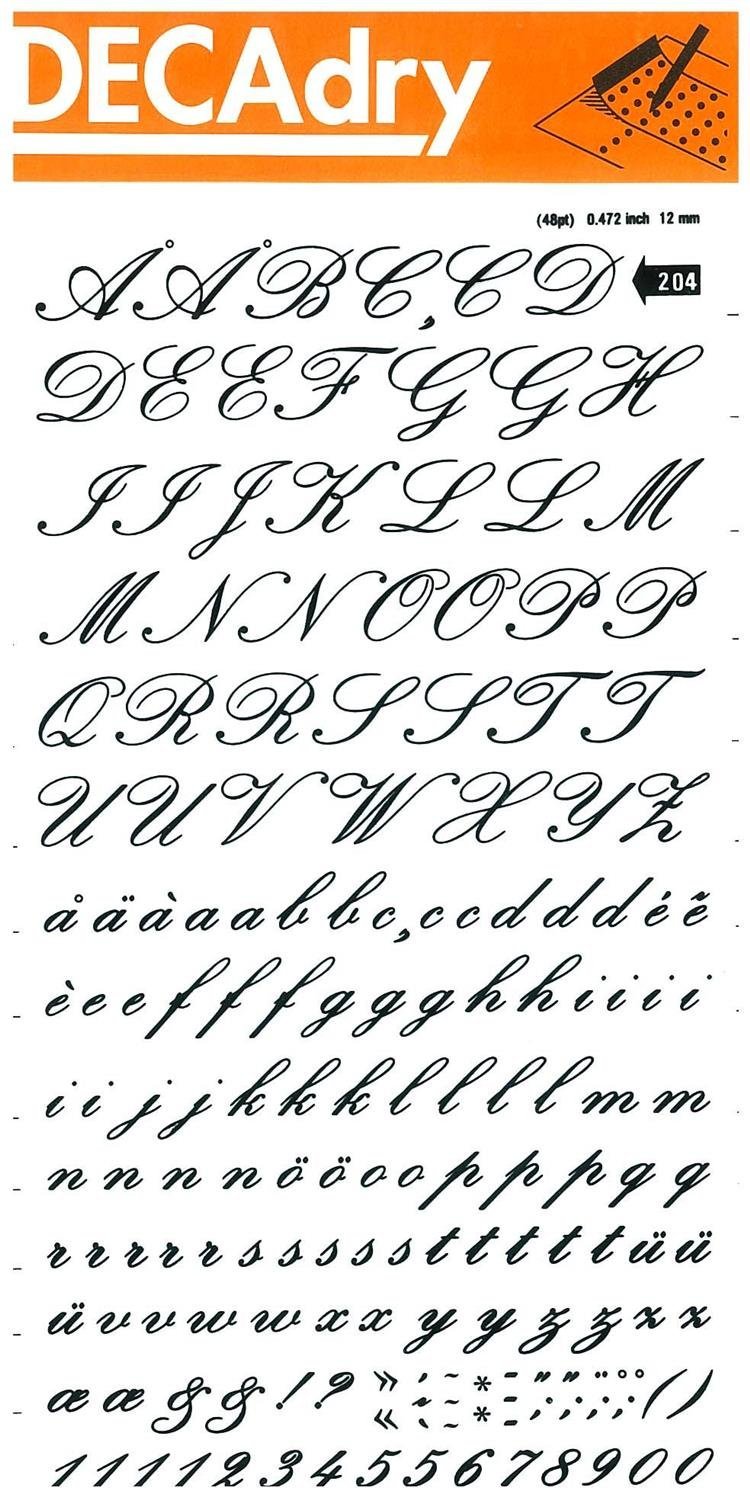 DECAdry
(48pt) 0.472 inch 12 mm
Å Å B C , C D 204
D E E F G G H
I I J K L L M
M N N O O P P
Q R R S S T T
U U V W X Y Z
å ä à a a b b c , c c d d d é ẽ
è e e f f f g g g h h i i i i
i i j j k k k l l l l m m
n n n n ö ö o o p p p q q
r r r r r s s s s s t t t t t ü ü
ü v v w w x x y y ʒ ʒ z z
æ æ & & ! ? » ( )
« 
1 1 1 1 2 3 4 5 5 6 7 8 9 0 0